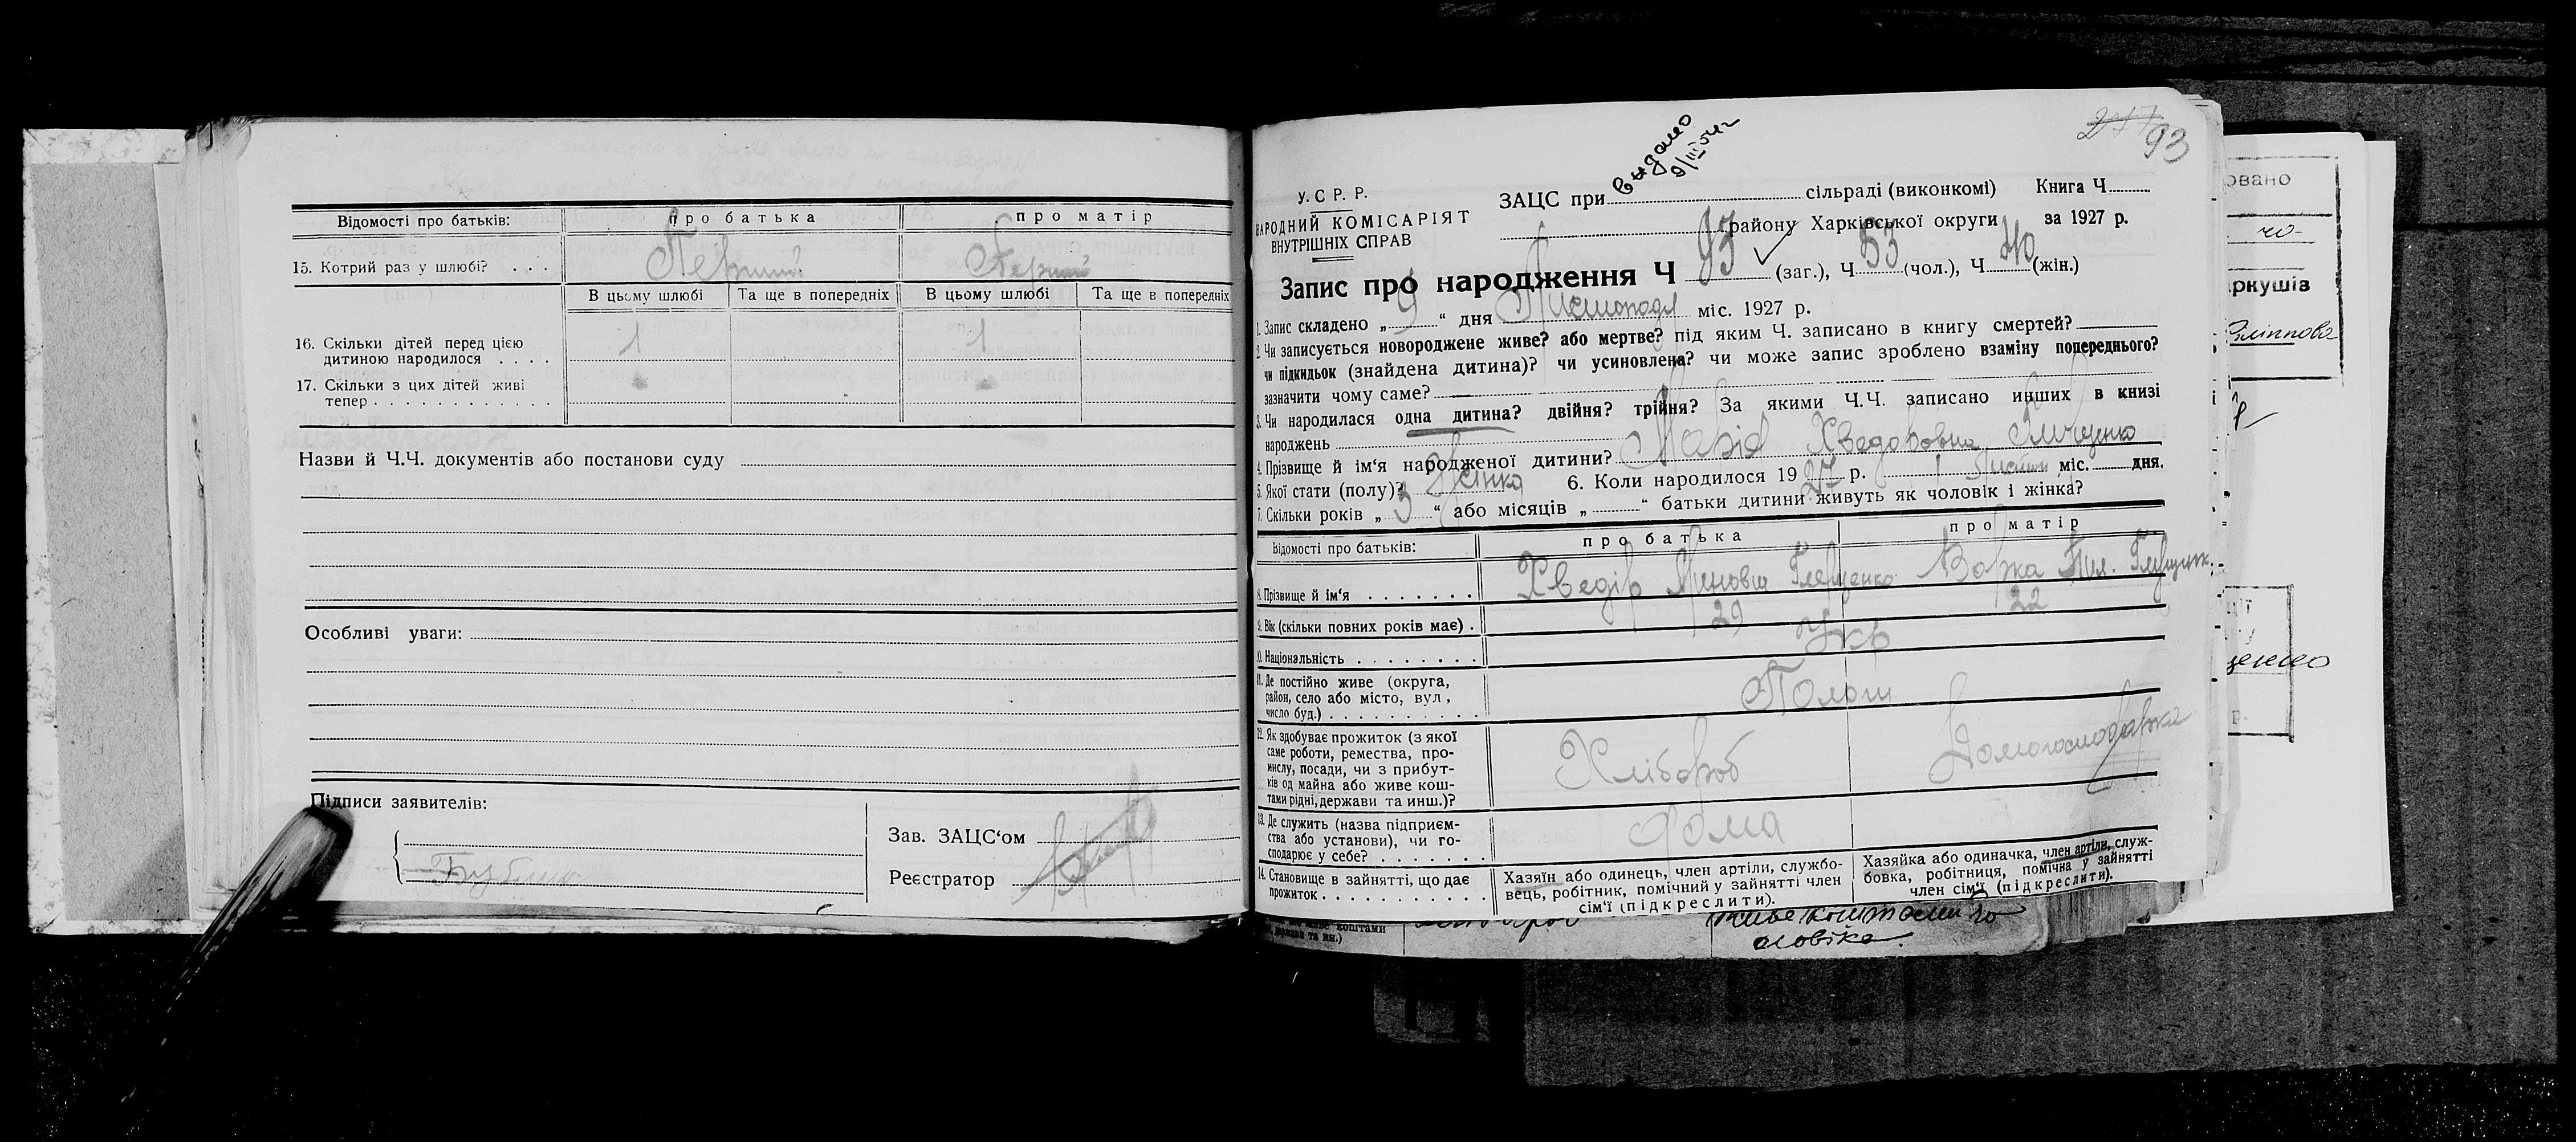 Відомості про батьків: про батька про матір
15. Котрий раз у шлюбі? . . . Перший Перший
В цьому шлюбі Та ще в попередніх В цьому шлюбі Та ще в попередніх
16. Скільки дітей перед цією 1 1
дитиною народилося . . . .
17. Скільки з цих дітей живі
тепер . . . . . . . . . . . .
Назви й Ч.Ч. документів або постанови суду
Особливі уваги:
Підписи заявителів:
Зав. ЗАЦС‘ом
Реєстратор
93
видано
9/III
У. С Р. Р.
НАРОДНИЙ КОМІСАРІЯТ
ВНУТРІШНІХ СПРАВ
ЗАЦС при сільраді (виконкомі) Книга Ч
району Харківської округи за 1927 р.
Запис про народження Ч 93 (заг.), Ч 53 (чол.), Ч 40 (жін.)
1. Запис складено „ 9 “ дня Листопада міс. 1927 р.
2. Чи записується новороджене живе? або мертве? під яким Ч. записано в книгу смертей?
чи підкидьок (знайдена дитина)? чи усиновлена? чи може запис зроблено взаміну попереднього?
зазначити чому саме?
3. Чи народилася одна дитина? двійня? трійня? За якими Ч.Ч. записано инших в книзі
народжень
4. Прізвище й ім‘я народженої дитини? Марія Хведоровна
5. Якої стати (полу)? Жінка 6. Коли народилося 19 27 р. 1 міс. дня.
7. Скільки років „ 3 “ або місяців „ “ батьки дитини живуть як чоловік і жінка?
Відомості про батьків: про батька про матір
8. Прізвище й ім‘я . . . . . . . Хведір Варка
9. Вік (скільки повних років має) . 29 22
10. Національність . . . . . . . . Укр
11. Де постійно живе (округа,
район, село або місто, вул,
число буд.) . . . . . . . . . .
12. Як здобуває прожиток (з якої
саме роботи, ремества, про-
мислу, посади, чи з прибут-
ків од майна або живе кош-
тами рідні, держави та инш.)?
Хлібороб Домогосподарка
13. Де служить (назва підприєм-
ства або установи), чи го-
сподарює у себе? . . . . . . .
дома
14. Становище в зайнятті, що дає
прожиток . . . . . . . . . . .
Хазяїн або одинець, член артіли, службо-
вець, робітник, помічний у зайнятті член
сім‘ї (підкреслити).
Хазяйка або одиначка, член артіли, служ-
бовка, робітниця, помічна у зайнятті
член сім‘ї (підкреслити).
живе коштами чо
ловіка.
овано
ркушів